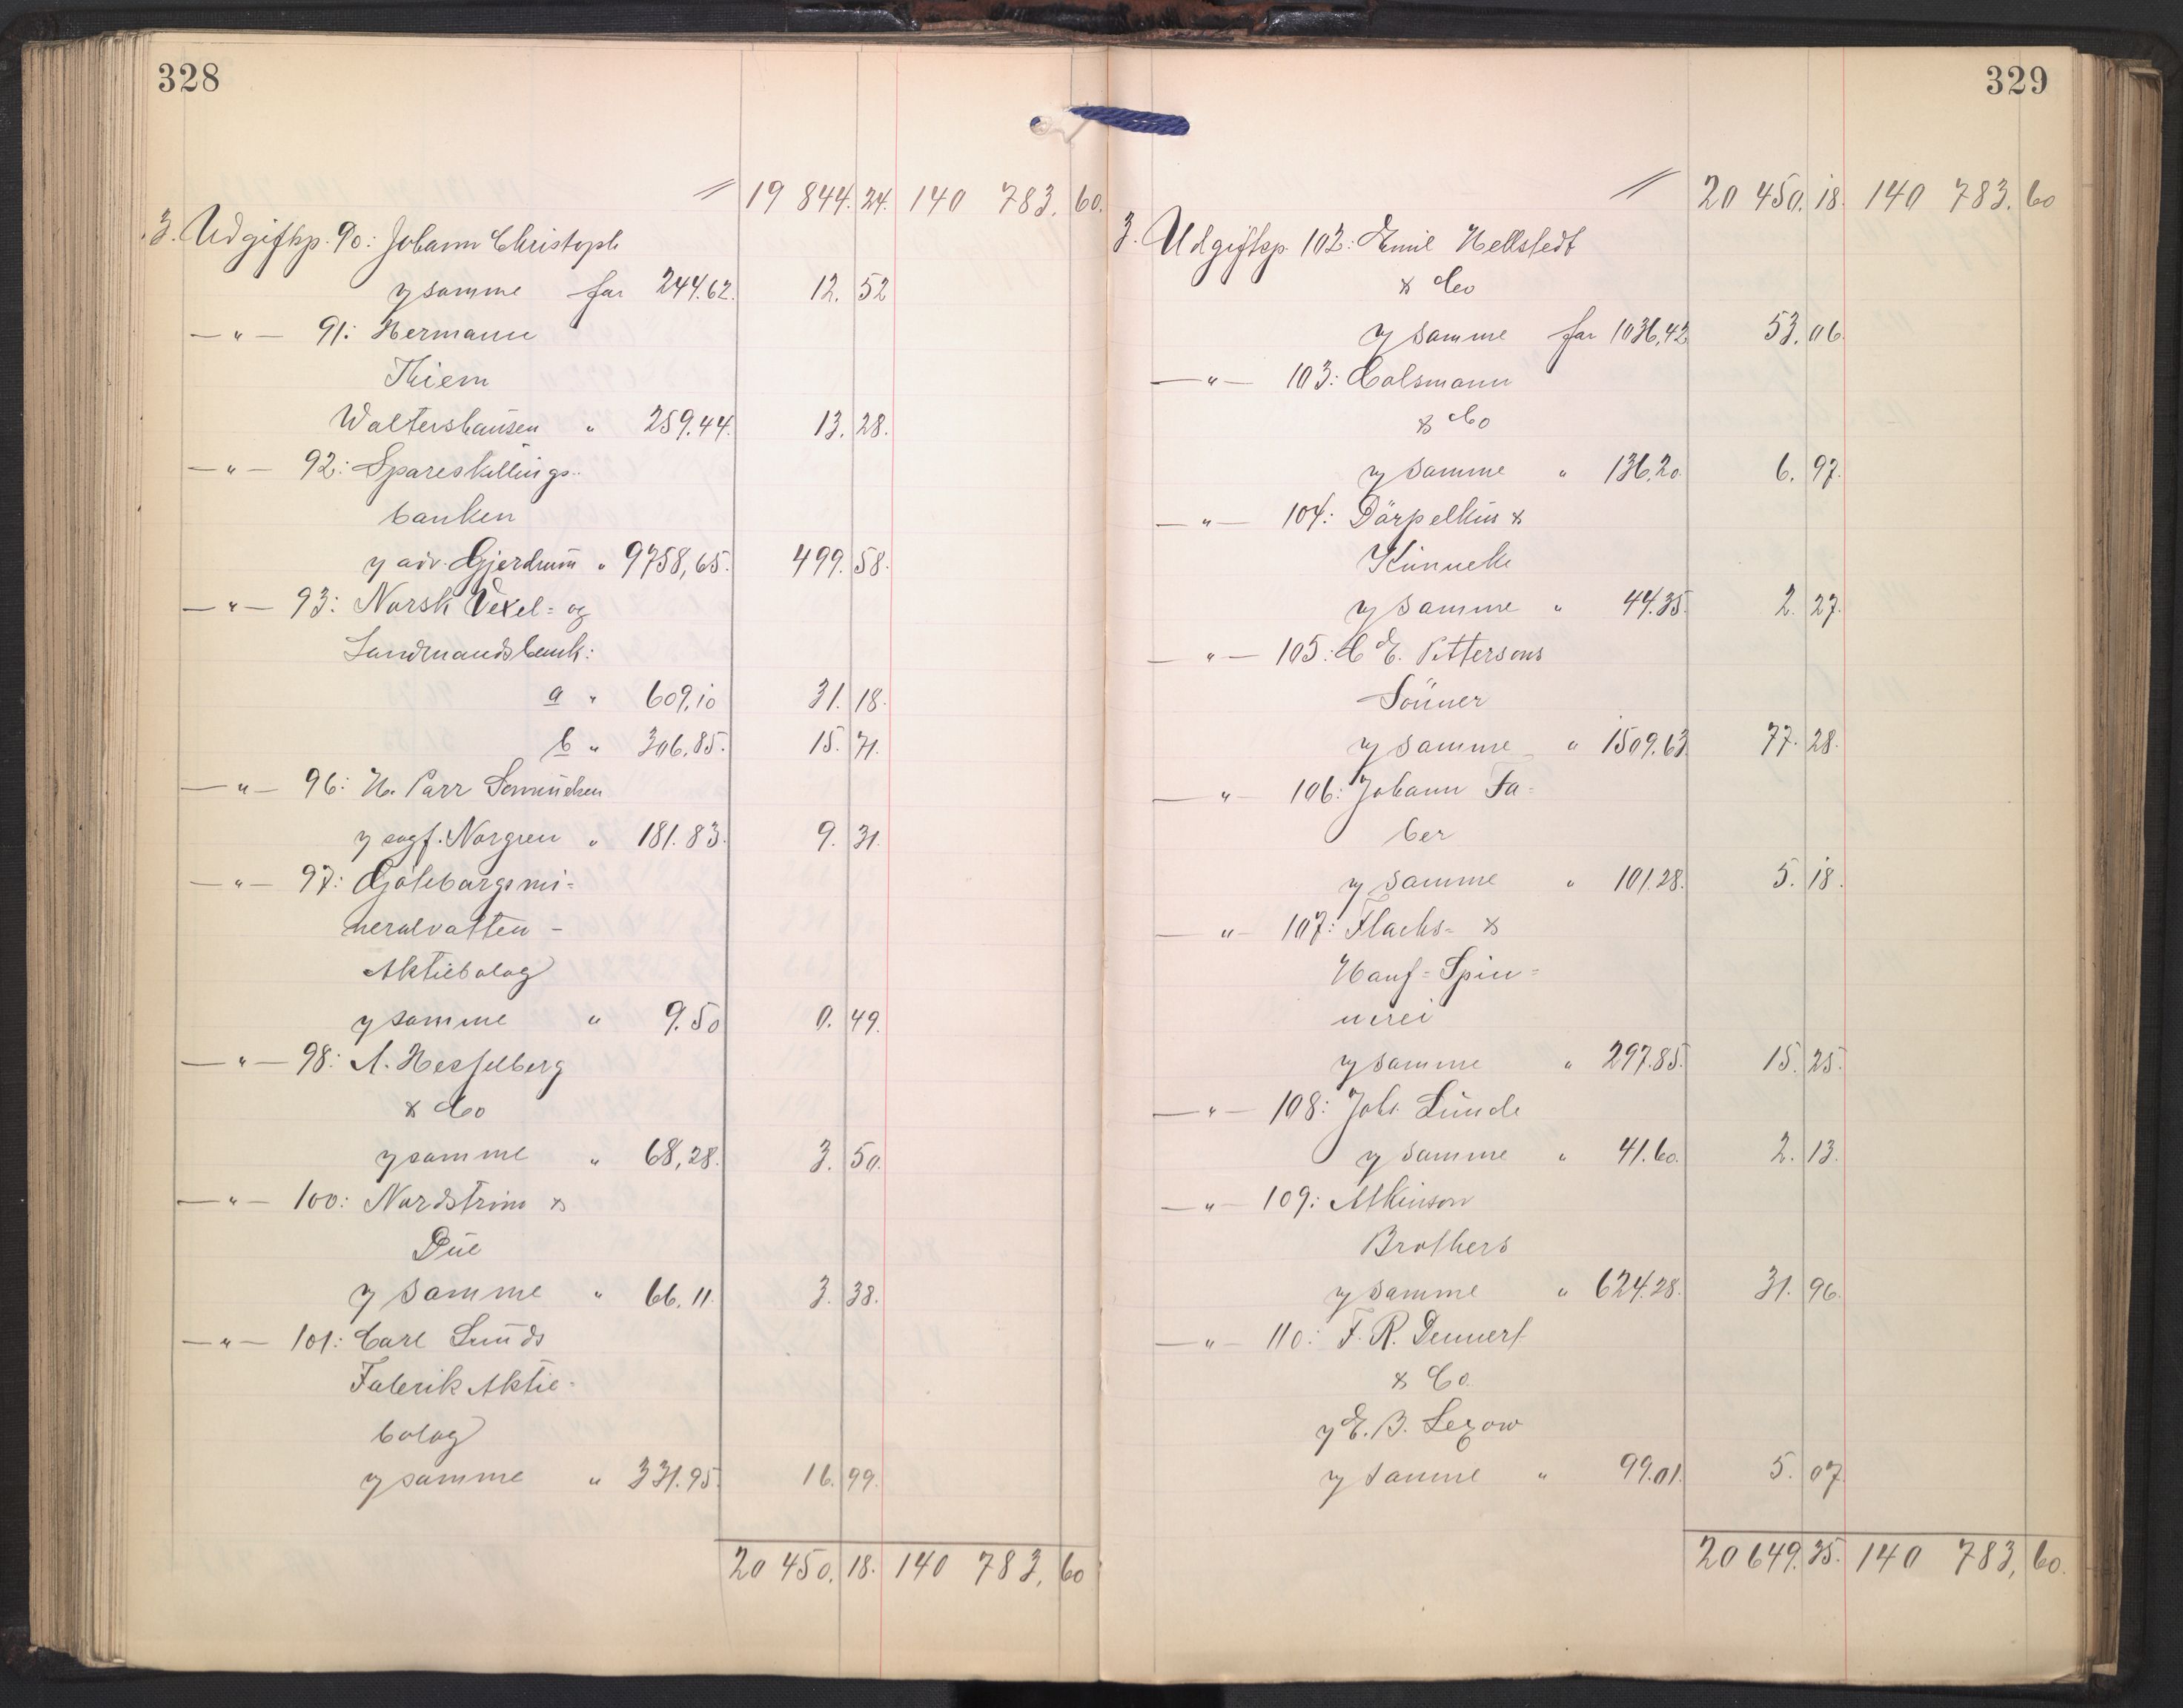 328
〃 19 844. 24. 140 783. 60.
3. Udgiftsp. 90: Johann Christoph
v samme for 244.62. 12. 52
—〃— 91: Hermann
Thiem
Waltershausen 〃 259.44. 13. 28.
—〃— 92: Spareskillings-
banken
v adv. Gjerdrum 〃 9758,65. 499. 58.
—〃— 93: Norsk Vexel= og
Landmandsbank:
a 〃 609,10 31. 18.
b 〃 306,85. 15. 71.
—〃— 96: H. Parr
v sagf. Norgren 〃 181.83. 9. 31.
—〃— 97: Gøteborgsmi=
neralvatten-
Aktiebolag
v samme 〃 9.50 0. 49.
—〃— 98: A. Hesselberg
& Co
v samme 〃 68,28. 3. 50.
—〃— 100: Nordstrøm &
Due
v samme 〃 66.11. 3. 38.
—〃— 101: Carl Lunds
Fabrik Aktie-
bolag
v samme 〃 331.95. 16. 99.
20 450. 18. 140 783, 60
329
〃 20 450. 18. 140 783. 60
3. Udgiftsp. 102: Emil Hellstedt
& Co
v samme for 1036,42 53. 06.
—〃— 103: Colsmann
& Co
v samme 〃 136,20. 6. 97.
—〃— 104: Dörpelkus &
Künneke
v samme 〃 44.35. 2. 27.
—〃— 105: C E. Pettersons
Sönner
v samme 〃 1509,63 77. 28.
—〃— 106: Johann Fa=
ber
v samme 〃 101.28. 5. 18.
—〃— 107: Flachs= &
Hanf=Spin=
nerei
v samme 〃 297.85. 15. 25.
—〃— 108: Johs. Lunde
v samme 〃 41.60. 2. 13.
—〃— 109: Atkinson
Brothers
v samme 〃 624.28. 31. 96.
—〃— 110: F. R. Dennert
& Co.
v E. B. Lexow
v samme 〃 99.01. 5. 07.
20 649. 35. 140 783, 60.